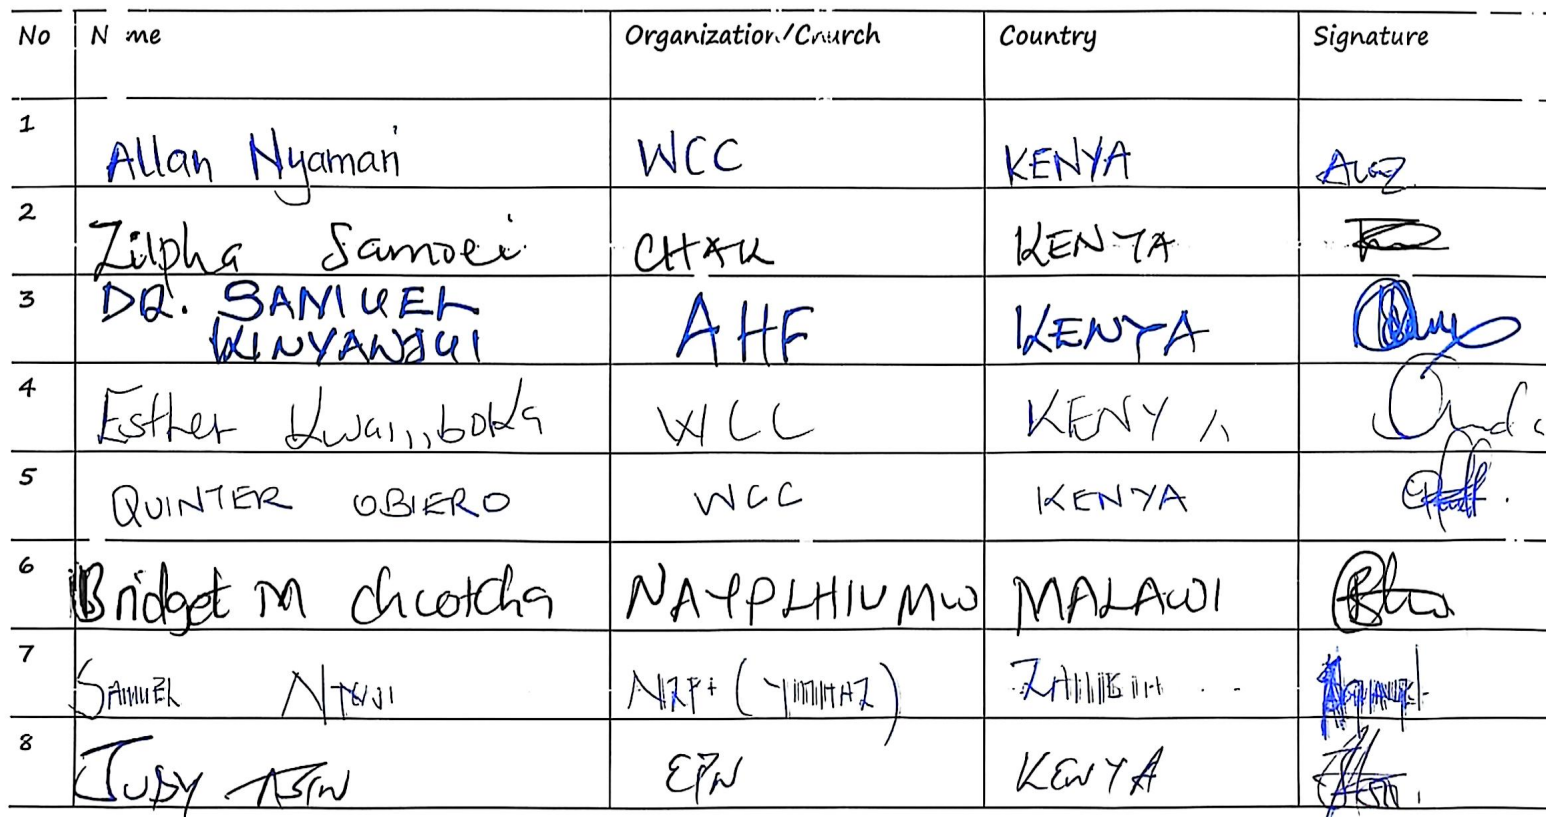 No Name Organization/Church Country Signature
1 Allan Nyamari WCC KENYA
2 Zilpha Samoei CHAK KENYA
3 DR. SAMUEL KINYANJUI AHF KENYA
4 Esther Kwamboka WCC KENYA
5 QUINTER OBIERO WCC KENYA
6 Bridget M Chcotcha NAYPLHIV MW MALAWI
7 SAMUEL NZP+ ZAMBIA
8 JUDY EPN KENYA